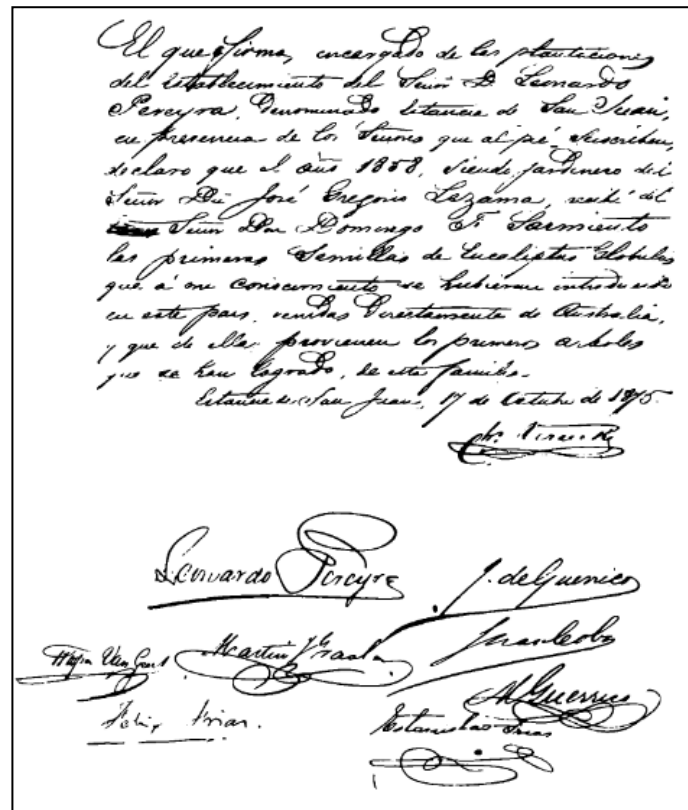 El que firma, encargado de las plantaciones
del establecimiento del Señor D. Leonardo
Pereyra, Denominado Estancia de San Juan,
en presencia de los Señores que al pié suscriben,
declaro que el año 1858, siendo jardinero del
Señor Dn José Gregorio Lezama, recibí del
Señor Don Domingo F. Sarmiento
las primeras Semillas de Eucaliptus Globulus
que á mi conocimiento se hubieran introducido
en este pais, venidas Directamente de Australia,
y que de ellas provienen los primeros arboles
que se han logrado, de esta familia.
Estancia de San Juan, 17 de Octubre de 1875.
Leonardo Pereyra
J. de Guerrico
Martin
Juan Cobo
M Guerrico
Felix Frias.
Estanislao Frias